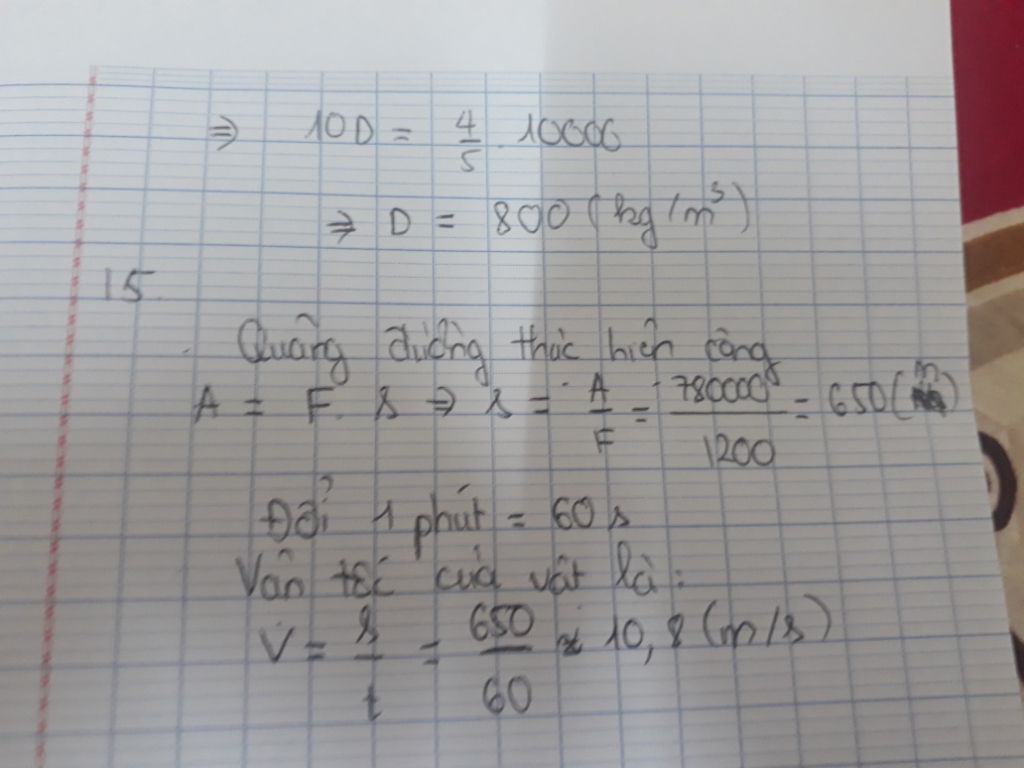 ⇒ 10D = 4/5 . 10000
⇒ D = 800 (kg/m³)
15.
Quãng đường thực hiện công
A = F. s ⇒ s = A/F = 780000/1200 = 650 (m)
Đổi 1 phút = 60s
Vận tốc của vật là:
V = s/t = 650/60 ≈ 10,8 (m/s)